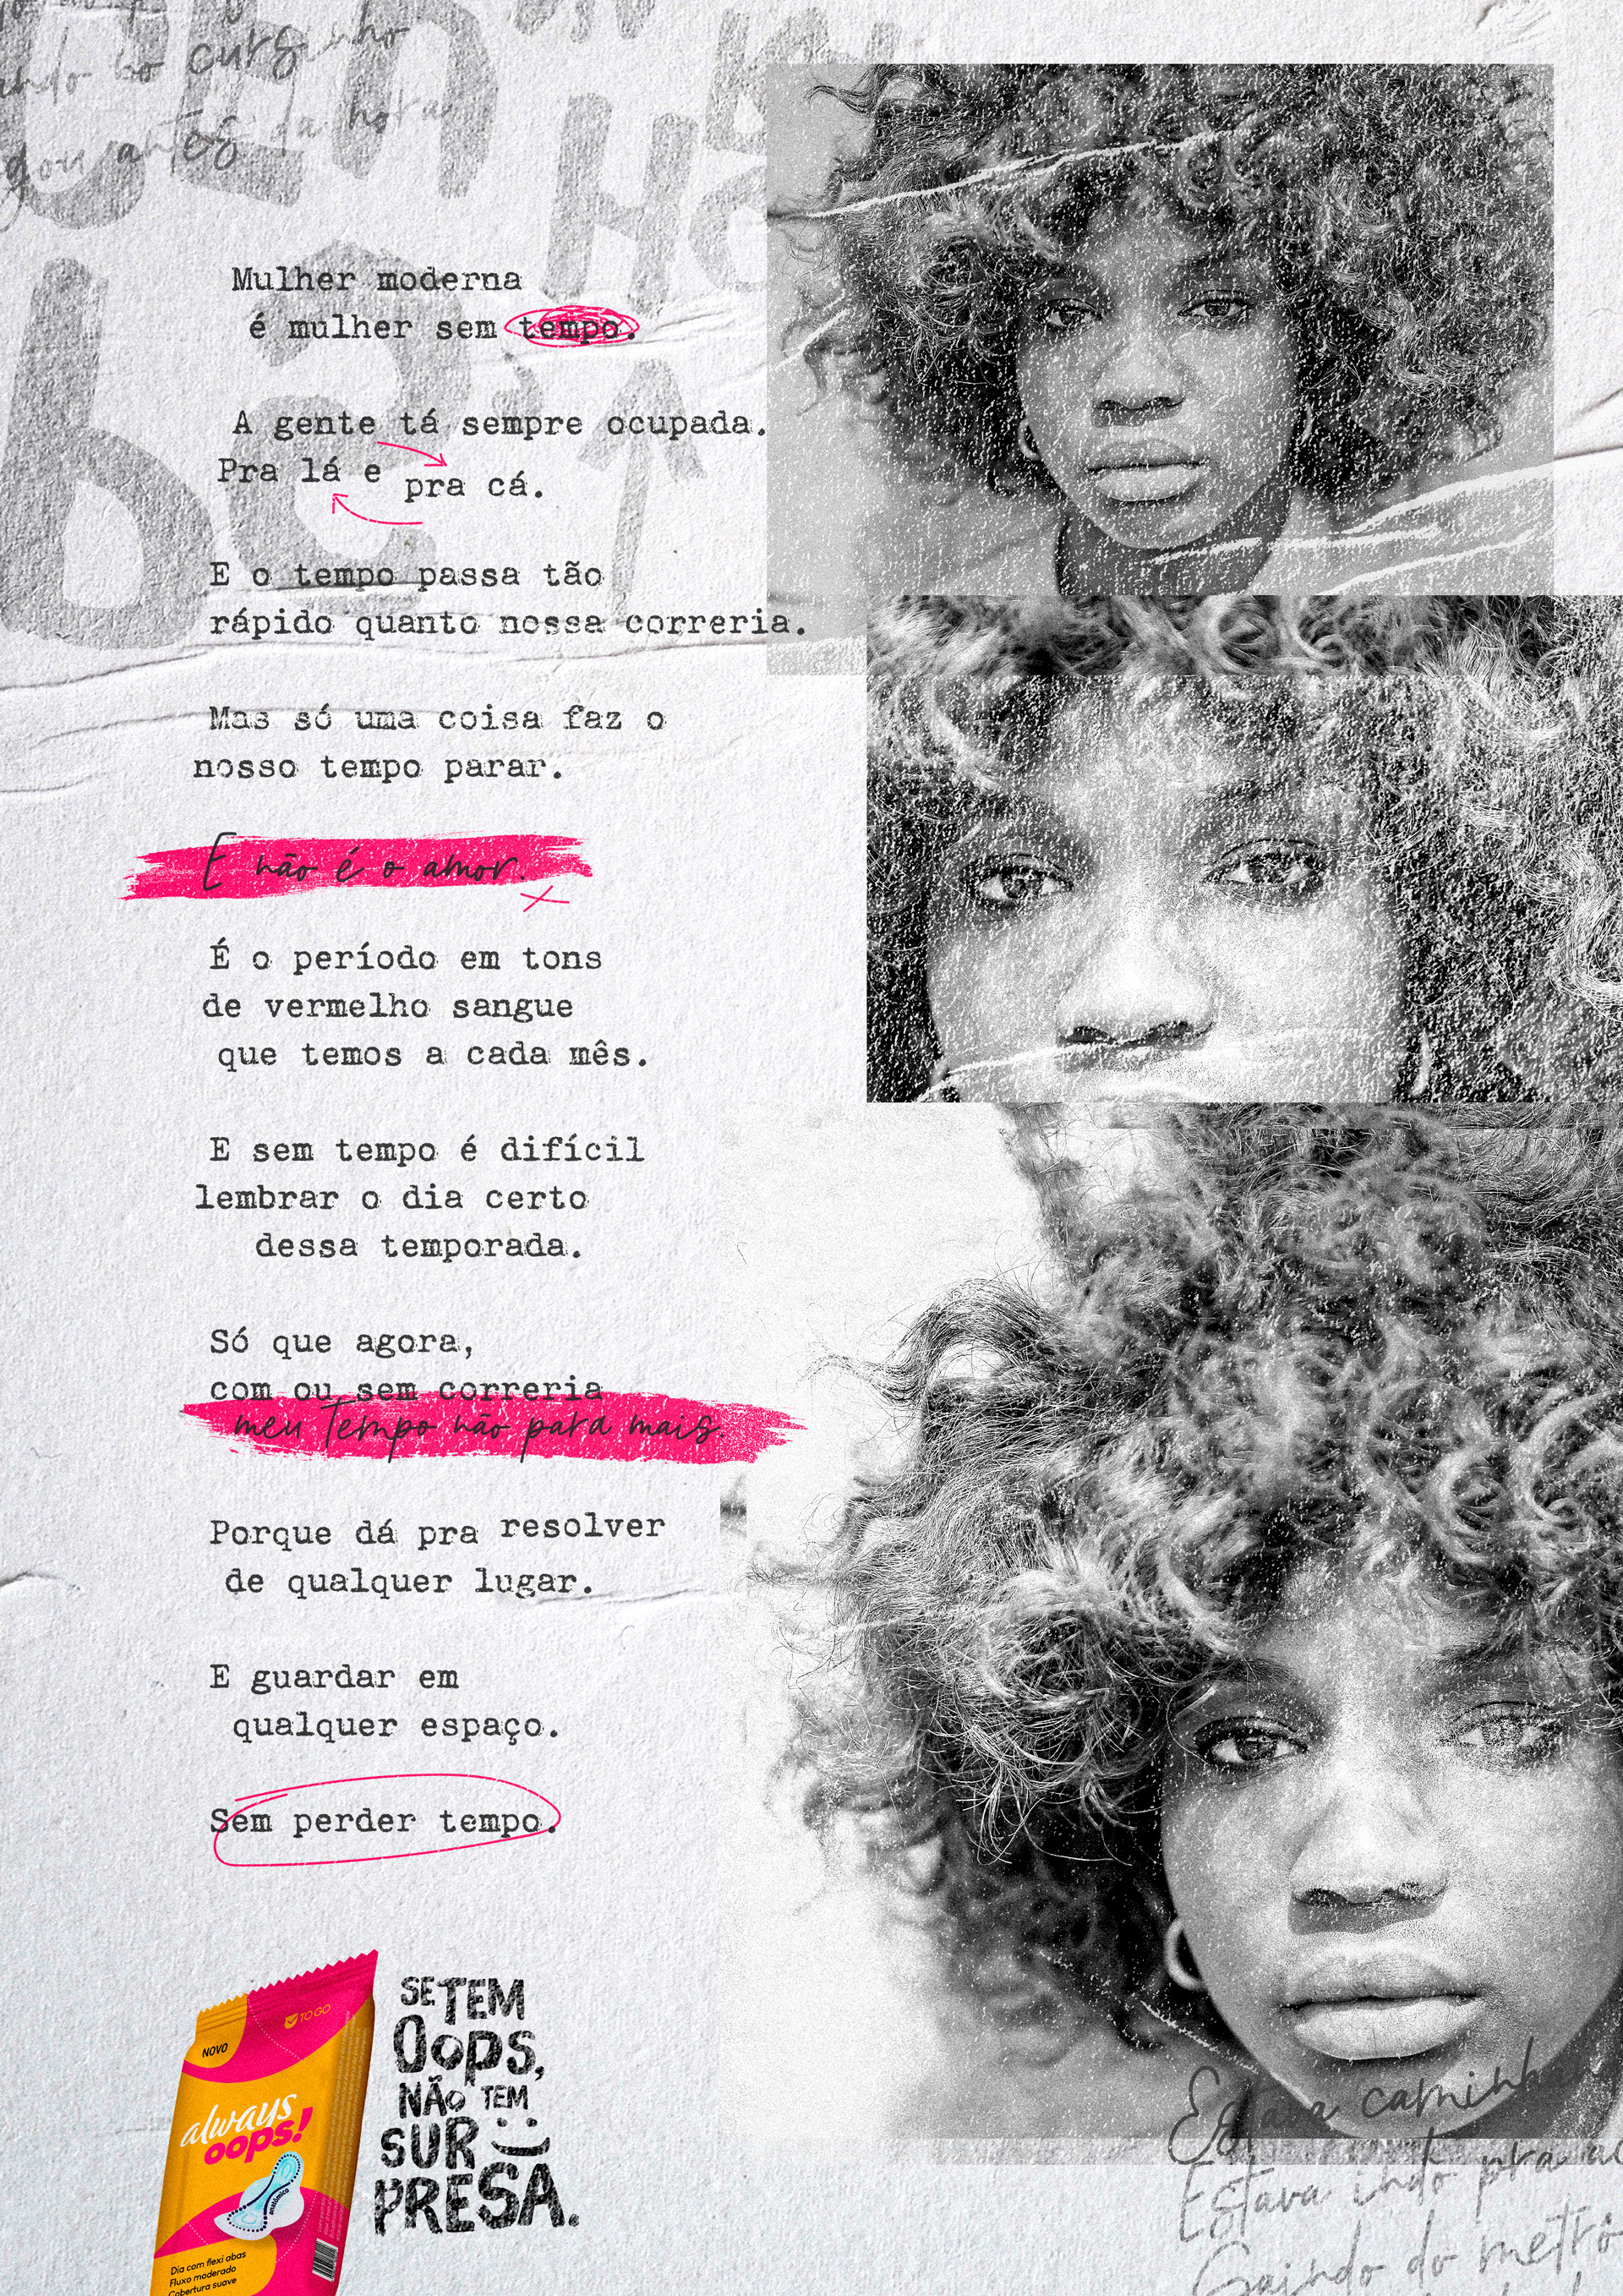 cursinho
antes da hora
Mulher moderna
é mulher sem tempo.
A gente tá sempre ocupada.
Pra lá e pra cá.
E o tempo passa tão
rápido quanto nossa correria.
Mas só uma coisa faz o
nosso tempo parar.
E não é o amor.
É o período em tons
de vermelho sangue
que temos a cada mês.
E sem tempo é difícil
lembrar o dia certo
dessa temporada.
Só que agora,
com ou sem correria
meu tempo não para mais.
Porque dá pra resolver
de qualquer lugar.
E guardar em
qualquer espaço.
Sem perder tempo.
TO GO
NOVO
always
oops!
anatômico
Dia com flexi abas
Fluxo moderado
Cobertura suave
SE TEM
Oops,
NÃO TEM
SUR
PRESA.
Estava
Estava indo pra
Saindo do metrô